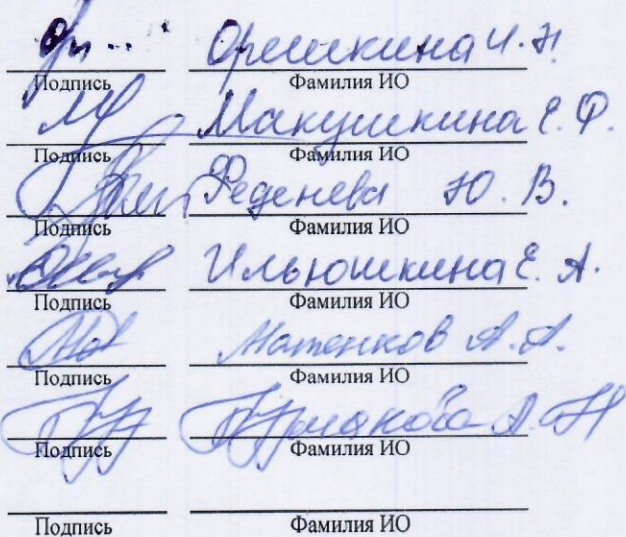 Орешкина И. Н.
Подпись Фамилия ИО
Макушкина Е. Ф.
Подпись Фамилия ИО
Феденева Ю. В.
Подпись Фамилия ИО
Ильюшкина Е. А.
Подпись Фамилия ИО
Матенков А. А.
Подпись Фамилия ИО
А. Н
Подпись Фамилия ИО
Подпись Фамилия ИО